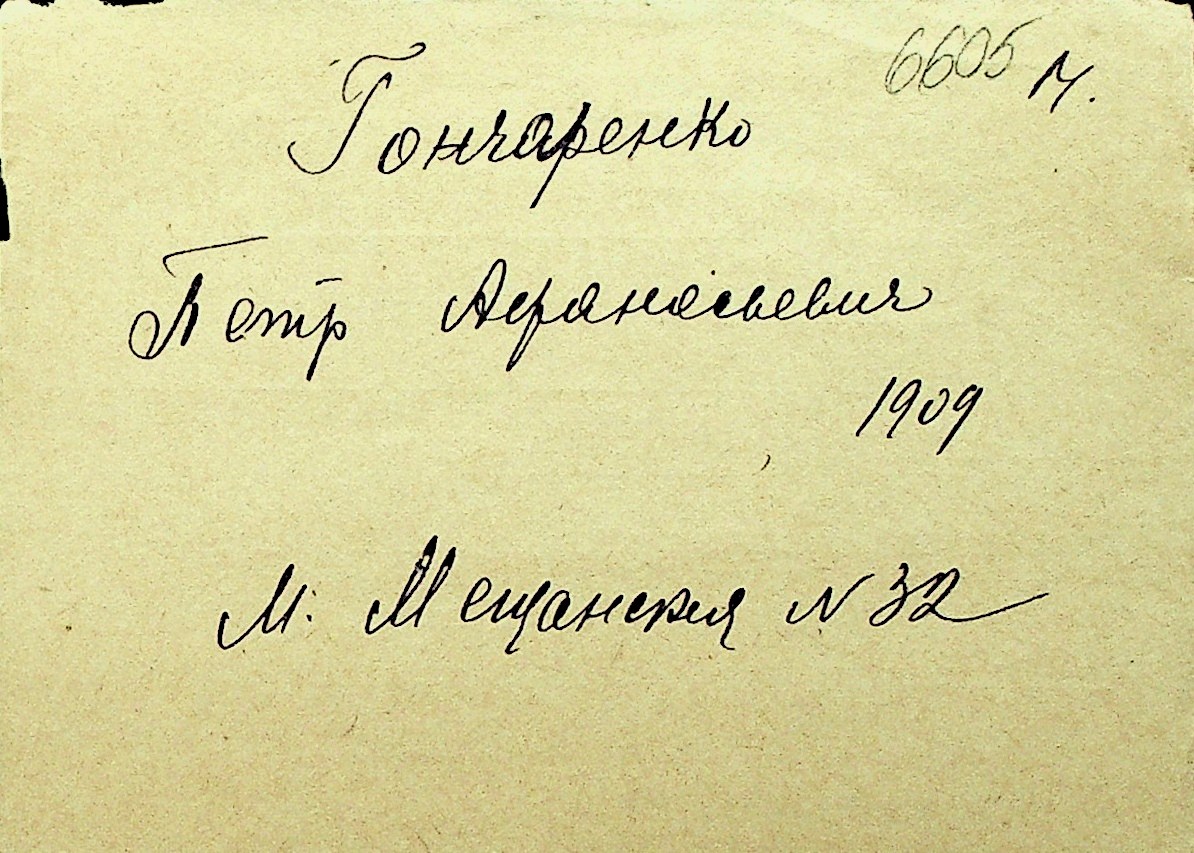 6605 М.
Гончаренко
Петр Афанасьевич
1909
М. Мещанская N 32